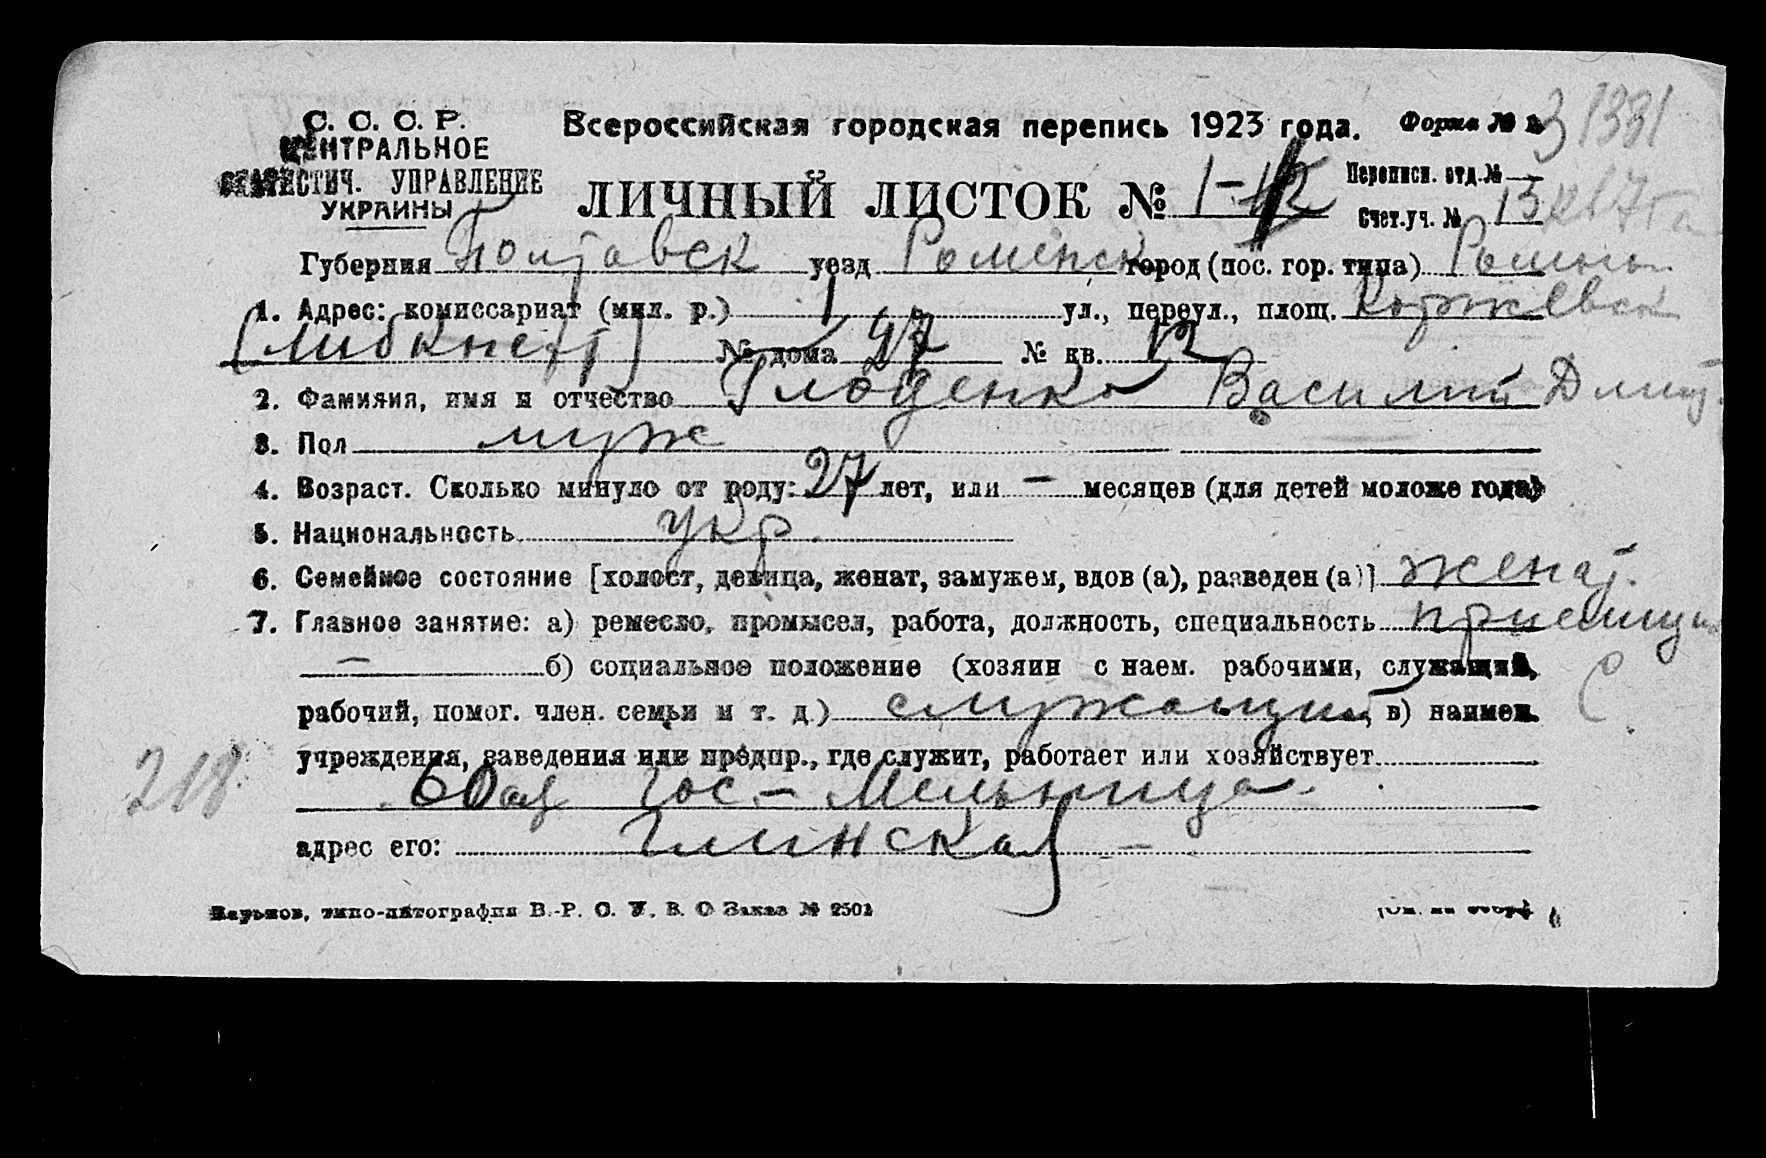 С. С. С. Р.
ЦЕНТРАЛЬНОЕ
СТАТИСТИЧ. УПРАВЛЕНИЕ
УКРАИНЫ
Всероссийская городская перепись 1923 года.
Форма №
31331
ЛИЧНЫЙ ЛИСТОК № 1-12
Переписн. отд. № —
Счет. уч. № 13
Губерния Полтавск уезд Роменск город (пос. гор. типа) Ромны
1. Адрес: комиссариат (мил. р.) 1 ул., переул., площ. Коржевск
(Либкнехт) № дома 97 № кв. 12
2. Фамилия, имя и отчество Глоденко Василий Дмит.
3. Пол муж
4. Возраст. Сколько минуло от роду: 27 лет, или — месяцев (для детей моложе года)
5. Национальность укр.
6. Семейное состояние [холост, девица, женат, замужем, вдов (а), разведен (а)] женат.
7. Главное занятие: а) ремесло, промысел, работа, должность, специальность приемщик
— б) социальное положение (хозяин с наем. рабочими, служащий, С
рабочий, помог. член. семьи и т. д.) служащий, в) наимен.
учреждения, заведения или предпр., где служит, работает или хозяйствует
218
60ая Гос. — Мельница.
адрес его: Глинская —
Харьков, типо-литография В.-Р. С. У. В. О Заказ № 2501